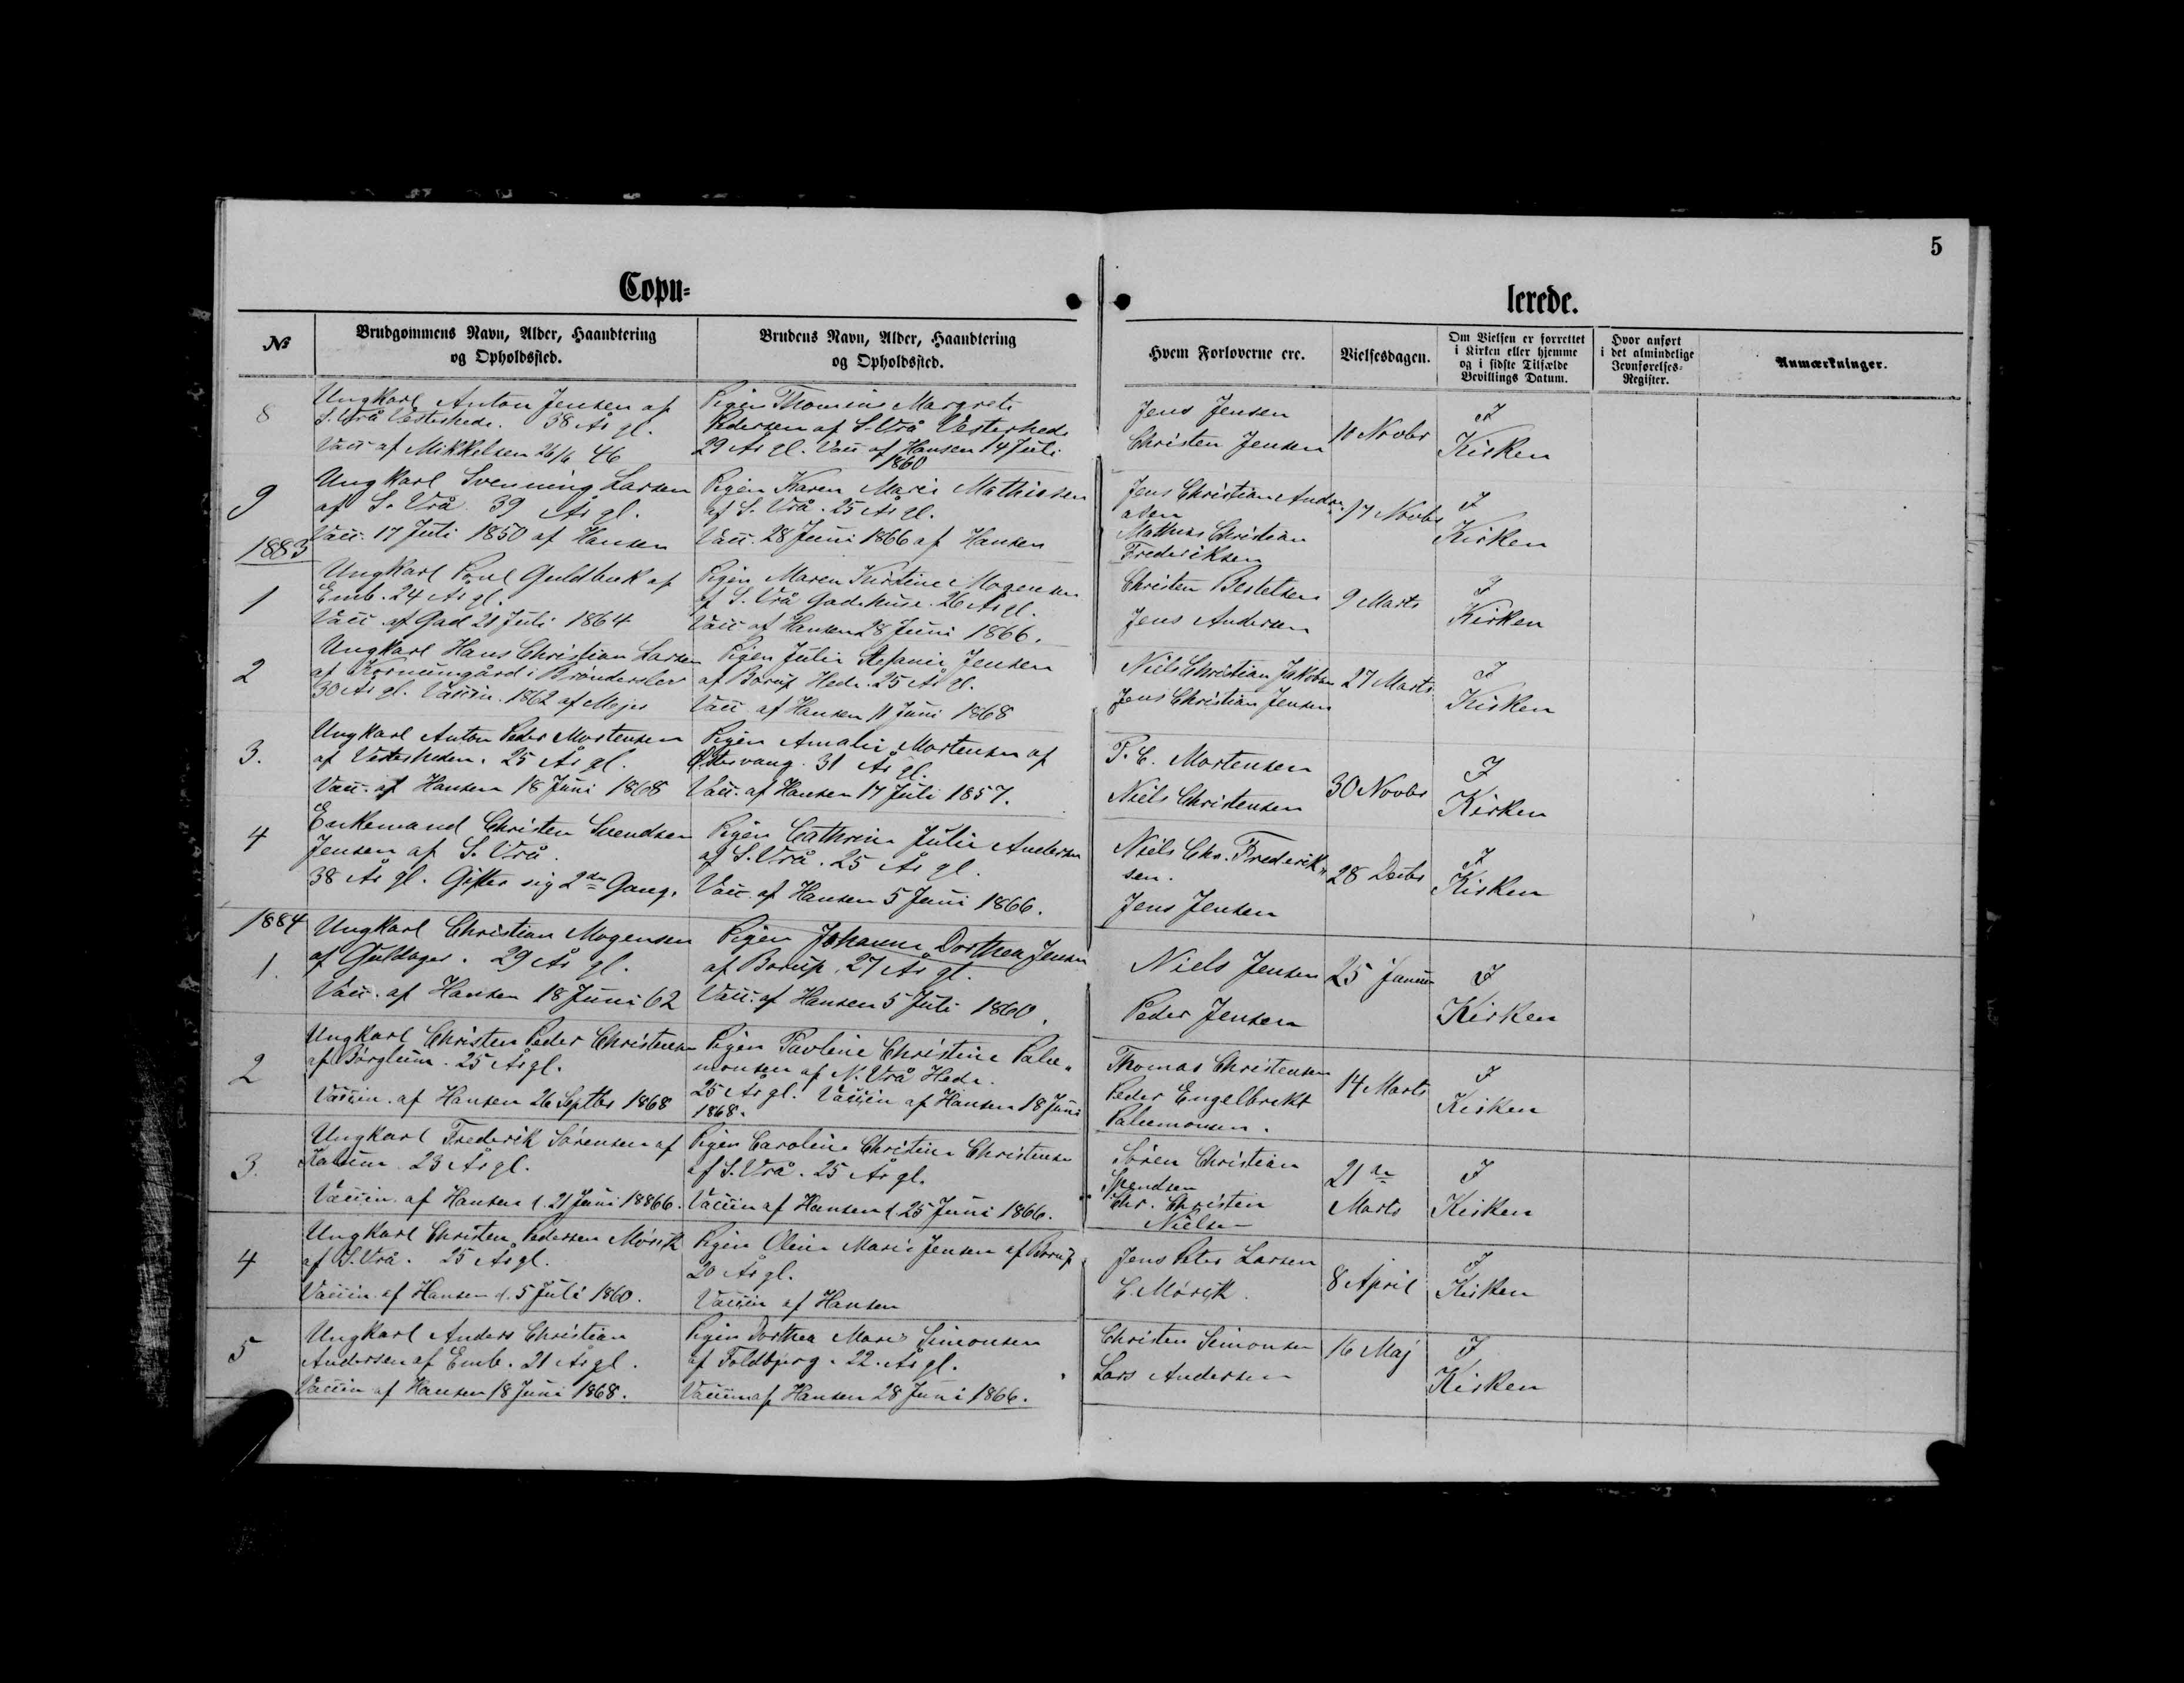 5
Copu=
lerede.
№
Brudgommens Navn, Alder, Haandtering
og Opholdssted.
Brudens Navn, Alder, Haandtering
og Opholdssted.
Hvem Forloverne ere.
Vielsesdagen.
Om Vielsen er forrettet
i Kirken eller hjemme
og i sidste Tilfælde
Bevillings Datum.
Hvor anført
i det almindelige
Jevnførelses-
Register.
Anmærkninger.
8
Ungkarl Anton Jensen af
S. Vrå Vesterhede. 38 År gl.
Vacc af Mikkelsen 26/6 46
Pigen Thomine Margrete
Pedersen af S. Vrå Vesterhede
29 År gl. Vacc af Hansen 14 Juli
1860
Jens Jensen
Christen Jensen
10 Novbr
I
Kirken
9
Ungkarl Svenning Larsen
af S. Vrå. 39 År gl.
Vacc. 17 Juli 1850 af Hansen
Pigen Karen Marie Mathiesen
af S. Vrå. 25 År gl.
Vacc. 28 Juni 1866 af Hansen
Jens Christian Andre-
asen
Mathias Christian
Frederiksen
17 Novbr
I
Kirken
1883
1
Ungkarl Poul Guldbæk af
Emb. 24 År gl.
Vacc. af Gad 21 Juli 1864
Pigen Maren Kirstine Mogensen
af S. Vrå Gadehuse. 26 År gl.
Vacc af Hansen 28 Juni 1866.
Christen
Jens Andersen
9 Marts
I
Kirken
2
Ungkarl Hans Christian Larsen
af Kornumgård i Brønderslev
30 År gl. Vaccin. 1862 af Mejer
Pigen Julie Stefanie Jensen
af Borup Hede. 25 År gl.
Vacc af Hansen 11 Juni 1868
Niels Christian Jakobsen
Jens Christian Jensen
27 Marts
I
Kirken
3.
Ungkarl Anton Peder Mortensen
af Vesterheden. 25 År gl.
Vacc. af Hansen 18 Juni 1868
Pigen Amalie Mortensen af
Østervang. 31 År gl.
Vacc. af Hansen 17 Juli 1857.
P. C. Mortensen
Niels Christensen
30 Novbr
I
Kirken
4
Enkemand Christen Svendsen
Jensen af S. Vrå.
38 År gl. Gifter sig 2den Gang.
Pigen Cathrine Julie Andersen
af S. Vrå. 25 År gl.
Vacc. af Hansen 5 Juni 1866.
Niels Chr. Frederik„
sen.
Jens Jensen
28 Decbr
I
Kirken
1884
1.
Ungkarl Christian Mogensen
af Guldager. 29 År gl.
Vacc. af Hansen 18 Juni 62
Pigen Johanne Dorthea Jensen
af Borup. 27 År gl.
Vacc. af Hansen 5 Juli 1860.
Niels Jensen
Peder Jensen
25 Januar
I
Kirken
2
Ungkarl Christen Peder Christensen
af Børglum. 25 År gl.
Vaccin. af Hansen 26 Septbr 1868
Pigen Pavline Christine Palee„
monsen af N. Vrå Hede.
25 År gl. Vaccin af Hansen 18 Juni
1868.
Thomas Christensen
Peder Engelbrekt
Paleemonsen.
14 Marts
I
Kirken
3.
Ungkarl Frederik Sørensen af
23 År gl.
Vaccin. af Hansen d. 21 Juni 18866.
Pigen Caroline Christine Christensen
af S. Vrå. 25 År gl.
Vaccin af Hansen d. 25 Juni 1866.
Søren Christian
Svendsen
Chr. Christen
Nielsen
21de
Marts
I
Kirken
4
Ungkarl Christen Pedersen Mørck
af S. Vrå. 25 År gl.
Vaccin. af Hansen d. 5 Juli 1860.
Pigen Oline Marie Jensen af Borup
20 År gl.
Vaccin af Hansen
Jens Peter Larsen
C. Mørck.
8 April
I
Kirken
5
Ungkarl Anders Christian
Andersen af Emb. 21 År gl.
Vaccin af Hansen 18 Juni 1868.
Pigen Dorthea Marie Simonsen
af Foldbjerg. 22 År gl.
Vaccin af Hansen 28 Juni 1866.
Christen Simonsen
Lars Andersen
16 Maj
I
Kirken